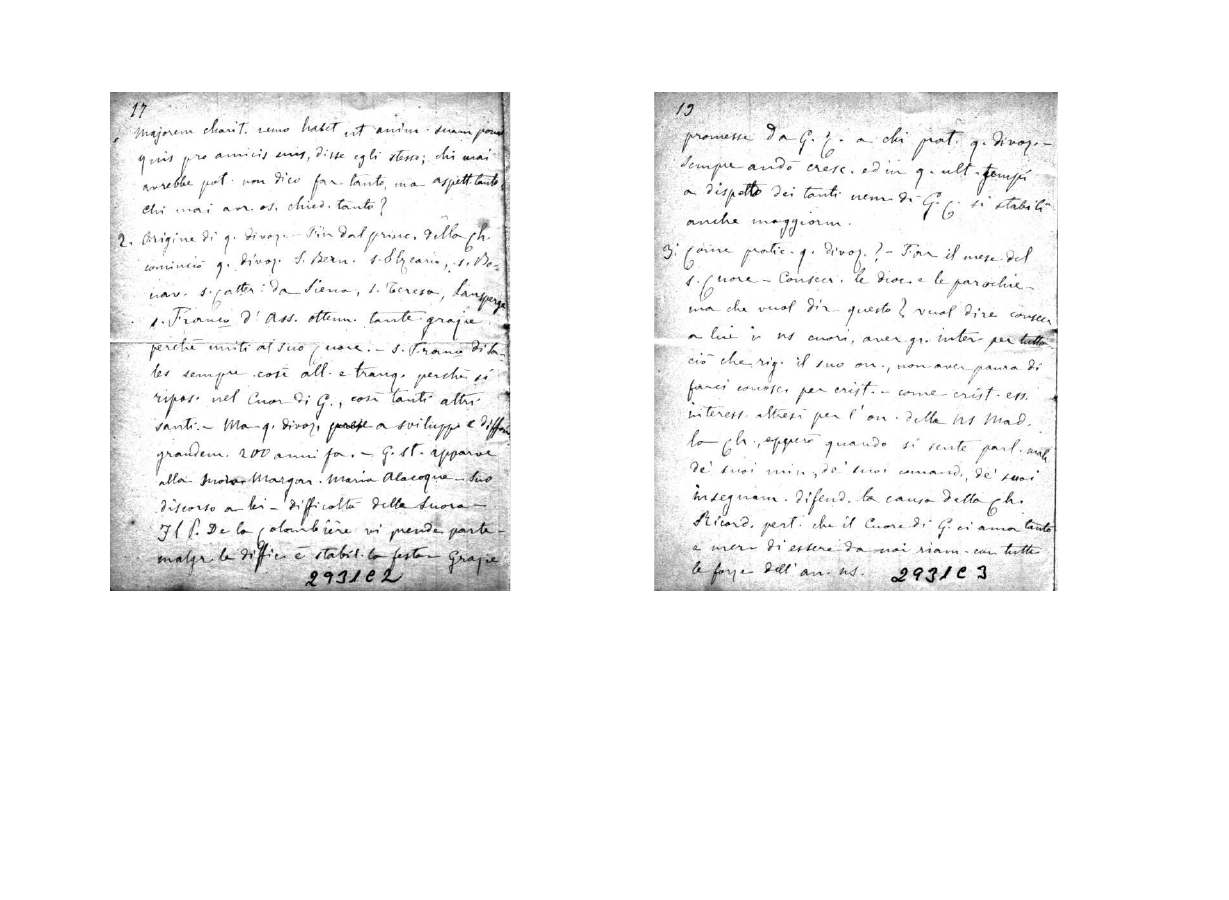 17
Majorem charit. nemo habet ut anim. suam pona
quis pro amicis suis, disse egli stesso; chi mai
avrebbe pot. non dico far tanto, ma aspett. tanto,
chi mai avr. os. chied. tanto?
2. Origine di q. divoz. — Fin dal princ. della Ch.
cominciò q. divoz. S. Bern. s. Lic, s. Bo-
nav. s. Catter. da Siena, s. Teresa, Lansperge
s. Franco d' Ass. ottenn. tante grazie
perchè uniti al suo Cuore. — s. Franco di Sa-
les sempre così all. e tranq. perchè si
ripos. nel Cuor di G., così tanti altri
santi. — Ma q. divoz. prese a svilupp. e diffon
grandem. 200 anni fa. — G. st. apparve
alla Margar. Maria Alacoque — Suo
discorso a lei — difficoltà della Suora —
Il P. De la Colombière vi prende parte —
malgr. le diffic. è stabil. la festa — Grazie
2931C2
19
promesse da G. C. a chi prat. q. divoz. —
Sempre andò cresc. ed in q. ult. tempi
a dispetto dei tanti nem. di G. C. si stabilì
anche maggiorm.
3. Come pratic. q. divoz.? — Far il mese del
s. Cuore — Consecr. le dioc. e le parochie —
ma che vuol dir questo? vuol dire consecr
a lui i ns cuori, aver gr. inter. per tutto
ciò che rig. il suo on., non aver paura di
farci conosc. per crist. — come crist. ess.
interess. altresì per l' on. della ns Mad.
la Ch., epperò quando si sente parl. male
de' suoi min., de' suoi comand., de' suoi
insegnam. difend. la causa della Ch.
Ricord. pert. che il Cuore di G. ci ama tanto
e mer. di essere da noi riam. con tutte
le forze dell' an. ns.
2931C3